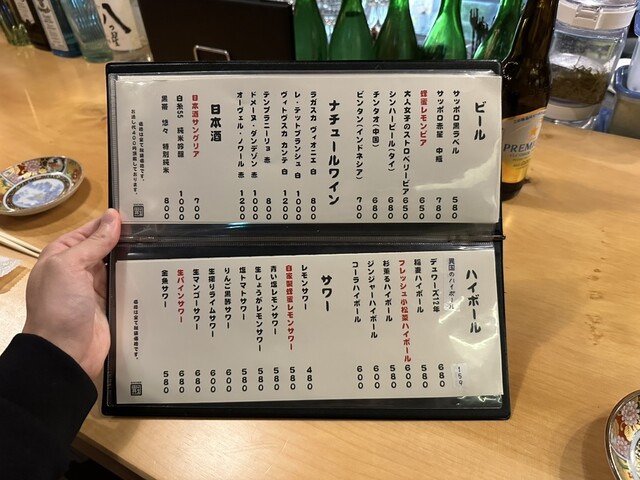 ビール
サッポロ黒ラベル 580
サッポロ赤星 中瓶 780
蜂蜜レモンビア 650
大人女子のストロベリービア 650
シンハービール(タイ) 680
チンタオ(中国) 680
ビンタン(インドネシア) 700
ナチュールワイン
ラガスカ ヴィオニエ 白 800
レ・テットブランシュ 白 1000
ヴィトヴスカ カンテ 白 1200
テンプラニーリョ 赤 800
ドメーヌ・ダンデゾン 赤 1000
オーヴェル・ノワール 赤 1200
日本酒
日本酒サングリア 700
白糸55 純米吟醸 1000
黒帯 悠々 特別純米 800
価格は全て税抜価格です。
お通し代400円頂戴しております。
ハイボール
異国のハイボール
デュワーズ12年 680
稲妻ハイボール 580
フレッシュ小松菜ハイボール 600
お薫るハイボール 580
ジンジャーハイボール 600
コーラハイボール 600
サワー
レモンサワー 480
自家製蜂蜜レモンサワー 580
青い塩レモンサワー 580
生しょうがレモンサワー 580
塩トマトサワー 580
りんご黒酢サワー 600
生搾りライムサワー 600
生マンゴーサワー 680
生パインサワー 680
金魚サワー 580
価格は全て税抜価格です。
PREM